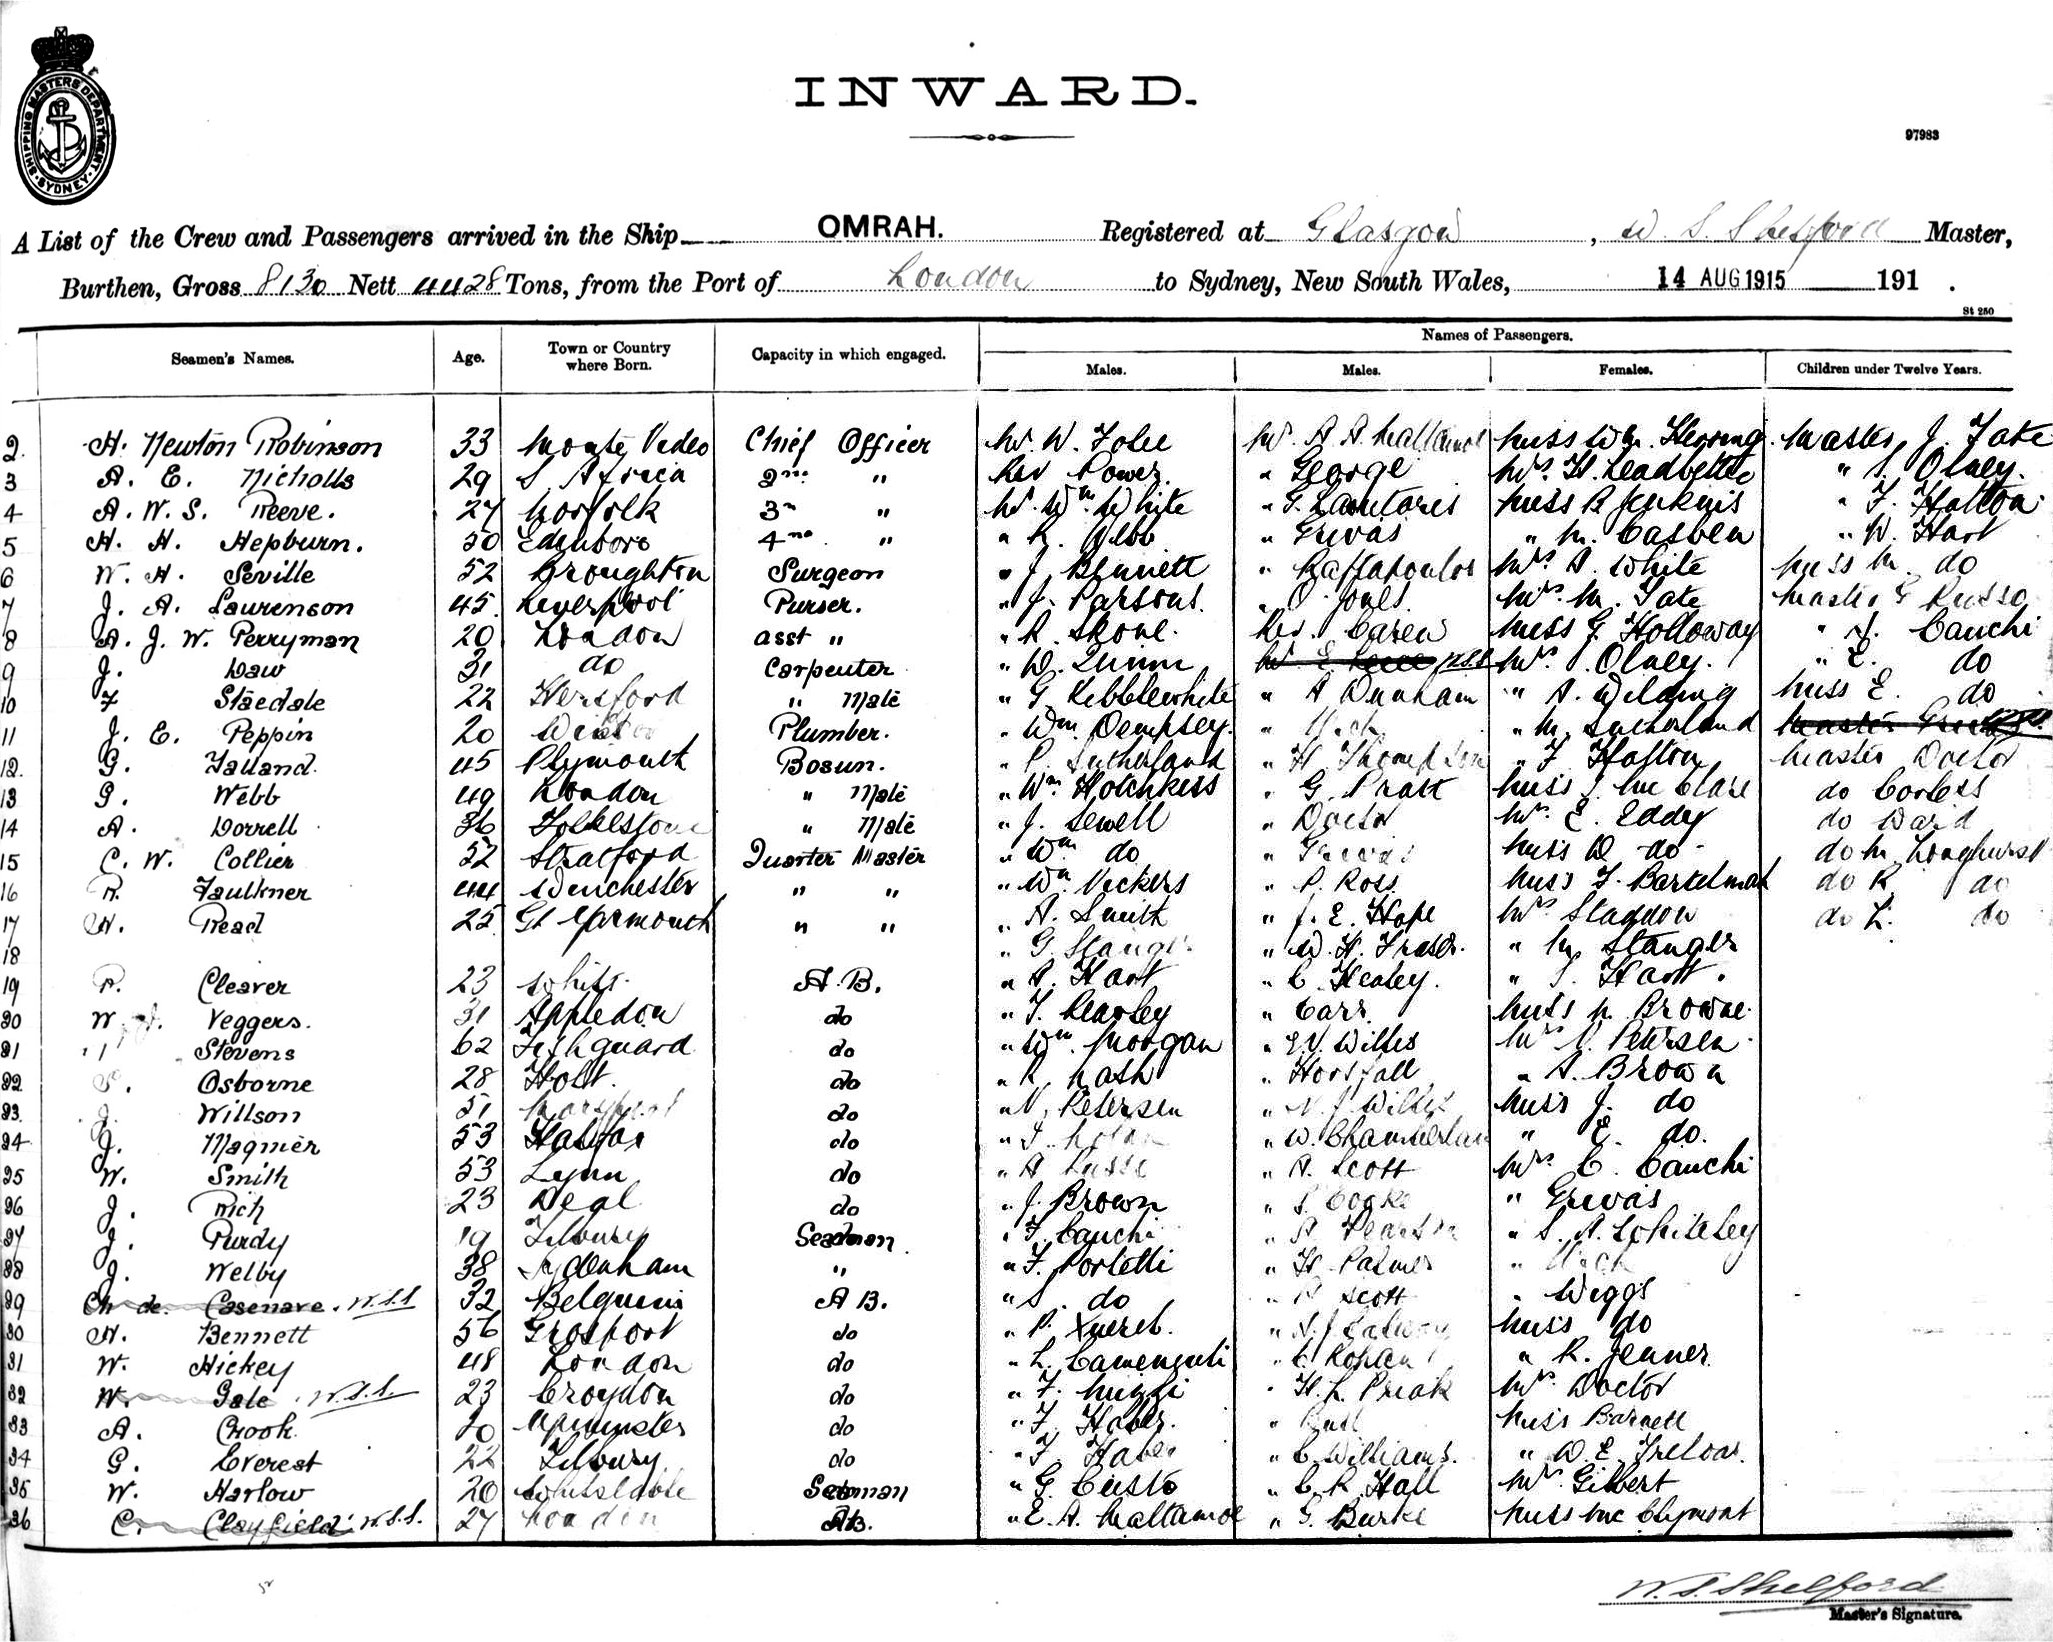 SHIPPING MASTERS DEPARTMENT · SYDNEY ·
INWARD.
97983
A List of the Crew and Passengers arrived in the Ship OMRAH. Registered at Glasgow, W. S. Shelford Master,
Burthen, Gross 8130 Nett 4428 Tons, from the Port of London to Sydney, New South Wales, 14 AUG 1915 191 .
St 250
Names of Passengers.
Seamen's Names. Age. Town or Country where Born. Capacity in which engaged. Males. Males. Females. Children under Twelve Years.
2. H. Newton Robinson 33 Monte Video Chief Officer Mr. W. Mr. A. A. Miss Wm. Herring Master J. Tate
3 A. E. Nicholls 29 S. Africa 2nd " Rev Power " George Mrs. H. Leadbetter " Olney.
4 A. W. S. Reeve. 27 Norfolk 3rd " Mr. Wm. White " G. Miss B Jenkins " F. Hatton
5 H. H. Hepburn. 30 Edinboro 4th " " R. Webb " Grivas " M. Casben " W. Hart
6 W. H. Seville 52 Broughton Surgeon " J. Bennett " Raftopoulos Mrs. A. White Miss M. do
7 J. A. Laurenson 45 Liverpool Purser. " J. Parsons. " O. Jones. Mrs. M. Tate Master G Russo
8 A. J. W. Perryman 20 London asst " " R. Skone. Rev. Carew Miss G. Holloway " Cauchi
9 J. Daw 31 do Carpenter " W. Quinn Mr E. W.S.S. Mrs. Olney. " E. do
10 F Staedale 22 Hereford " Mate " G. Kebblewhite " A Dunham " A. Wilding Miss E. do
11 J. E. Peppin 20 Plumber. " Wm. Dempsey. " " M. Sutherland Master
12. G. Talland. 45 Plymouth Bosun. " P. Sutherland " H. Thompson " F Hatton Master Doctor
13 G. Webb 49 London " Mate " Wm. Hotchkiss " G. Pratt Miss do Corless
14 A. Dorrell 36 Folkestone " Mate " J. Sewell " Doctor Mr. E. Eddy do Ward
15 C. W. Collier 52 Stratford Quarter Master " Wm do " Grivas Miss D do do M. Longhurst
16 R. Faulkner 44 Winchester " " " Wm Vickers " P. Ross Miss F. do R do
17 H. Read 25 Gt Yarmouth " " " A. Smith " J. E. Hope Mrs Staddon do L. do
18 " G. Stanger " W. H. Fraser. " M. Stanger
19 R. Cleaver 23 A. B. " A. Hart " C. Healey. " Hart.
20 W. Veggers. 31 Appledon do " T. Kearley " Carr. Miss M. Browne.
21 Stevens 62 Fishguard do " Wm. Morgan " E. V. Willis Mrs N. Petersen.
22 Osborne 28 Holt. do " R. Nash " Horsfall " A. Brown
23. J. Willson 51 do " N. Petersen " Miss J. do
24 J. Magnier 53 Halifax do " " W. Chamberlain " E. do.
25 W. Smith 53 Lynn do " A " A. Scott Mrs C. Cauchi
26 J. Rich 23 Deal do " J. Brown " Cooke " Grivas
27 J. Purdy 19 Tilbury Seaman " F. Cauchi " A. Pearson " S. A. Whiteley
28 J. Welby 38 Sydenham " " F. Portelli " H. Palmer "
29 Ch de. Casenave. W.S.S 32 Belgium A B. " S. do " A Scott " Wiggs
30 H. Bennett 56 Grosport do " P. Xuereb. " Miss do
31 W. Hickey 48 London do " L. Camenzuli " C. Rohan " R. Jenner
32 W. Gale. W.S.S. 23 Croydon do " F. " H. L. Mrs Doctor
33 A. Crook 20 Upminster do " F. Haber. " Miss Barnett
34 G. Everest 22 Tilbury do " F. Haber " C. Williams. " W. E. Treloar.
35 W. Harlow 20 Whitstable Seaman " G. Custo " C. R. Hall Mrs Gilbert
36 C. Clayfield W.S.S. 27 London AB. " E. A. " G. Burke Miss
W. S. Shelford
Master's Signature.